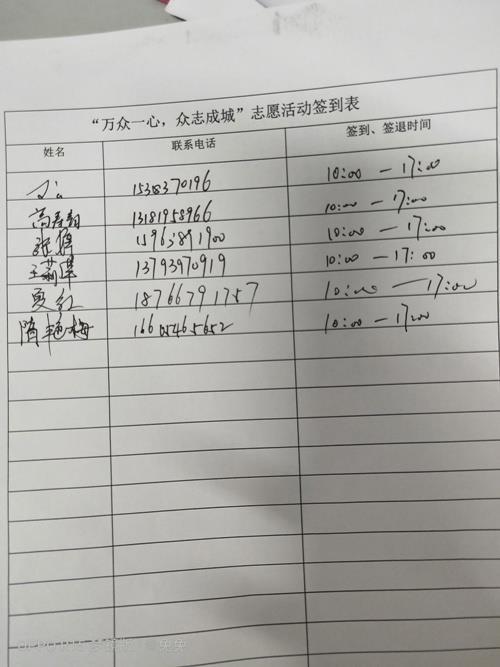 “万众一心，众志成城”志愿活动签到表
姓名 联系电话 签到、签退时间
15383370196 10:00 — 17:00
13181958966 10:00 — 17:00
张 15963891900 10:00 — 17:00
王莉萍 13793970919 10:00 — 17:00
夏红 18766791757 10:00 — 17:00
隋艳梅 16605465652 10:00 — 17:00